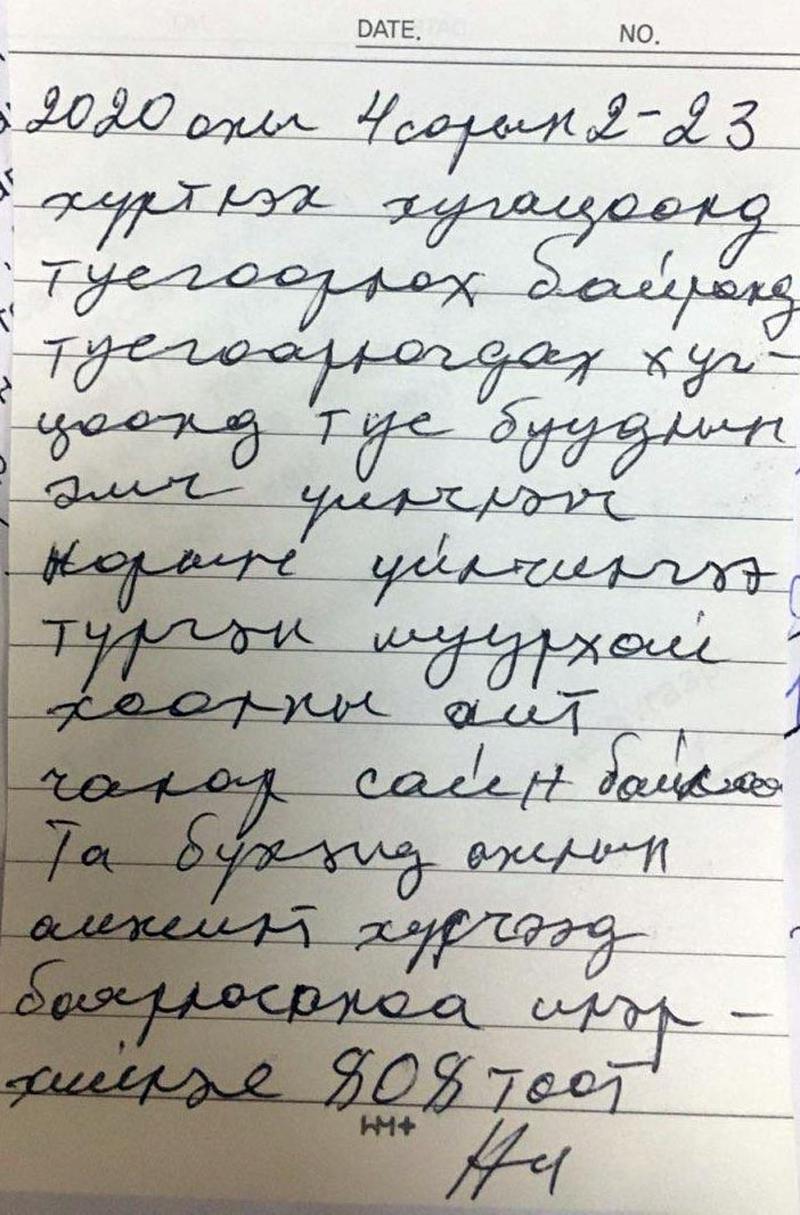 DATE. NO.
2020 оны 4 сарын 2-23
хүртлэх хугацаанд
тусгаарлах байранд
тусгаарлагдах хуг-
цаанд тус буудлын
эмч үйлчлэгч
нарын үйлчилгээ
түргэн шуурхай
хоолны
чанар сайн байлаа
Та бүхэнд ажлын
амжилт хүсчээд
баярласанаа илэр-
хийлье 808 тоот